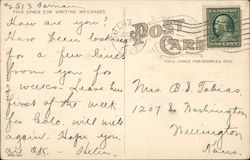 2513 Farnam
THIS SPACE FOR WRITING MESSAGES
How are you?
Have been looking
for a few lines
from you for
2 weeks. Leave here
first of the week
for Colo. will write
again. Hope you
are O.K. Helen.
POST CARD
THIS SPACE FOR ADDRESS ONLY
Mrs. B. F. Tobias.
1207 S. Washington
Wellington
Kans.